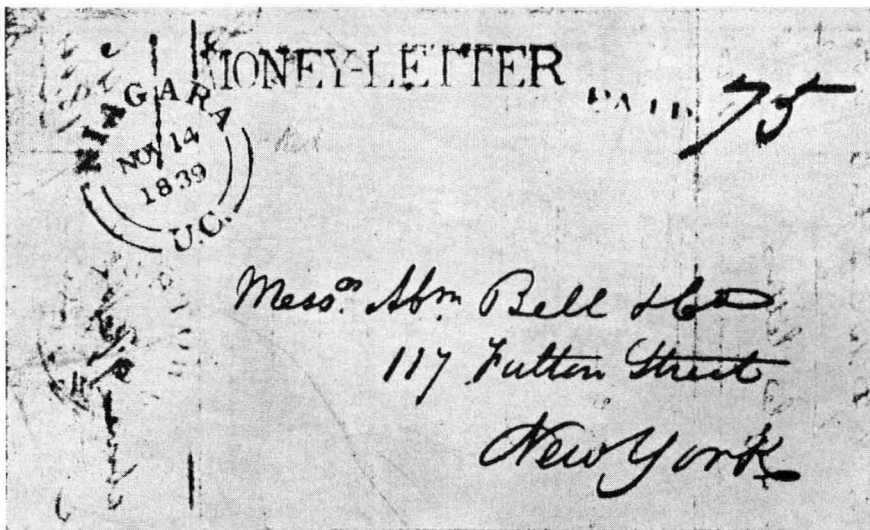 MONEY-LETTER
PAID 75
NIAGARA
NOV 14
1839
U.C.
Mess.rs Abm Bell & Co
117 Fulton Street
New York